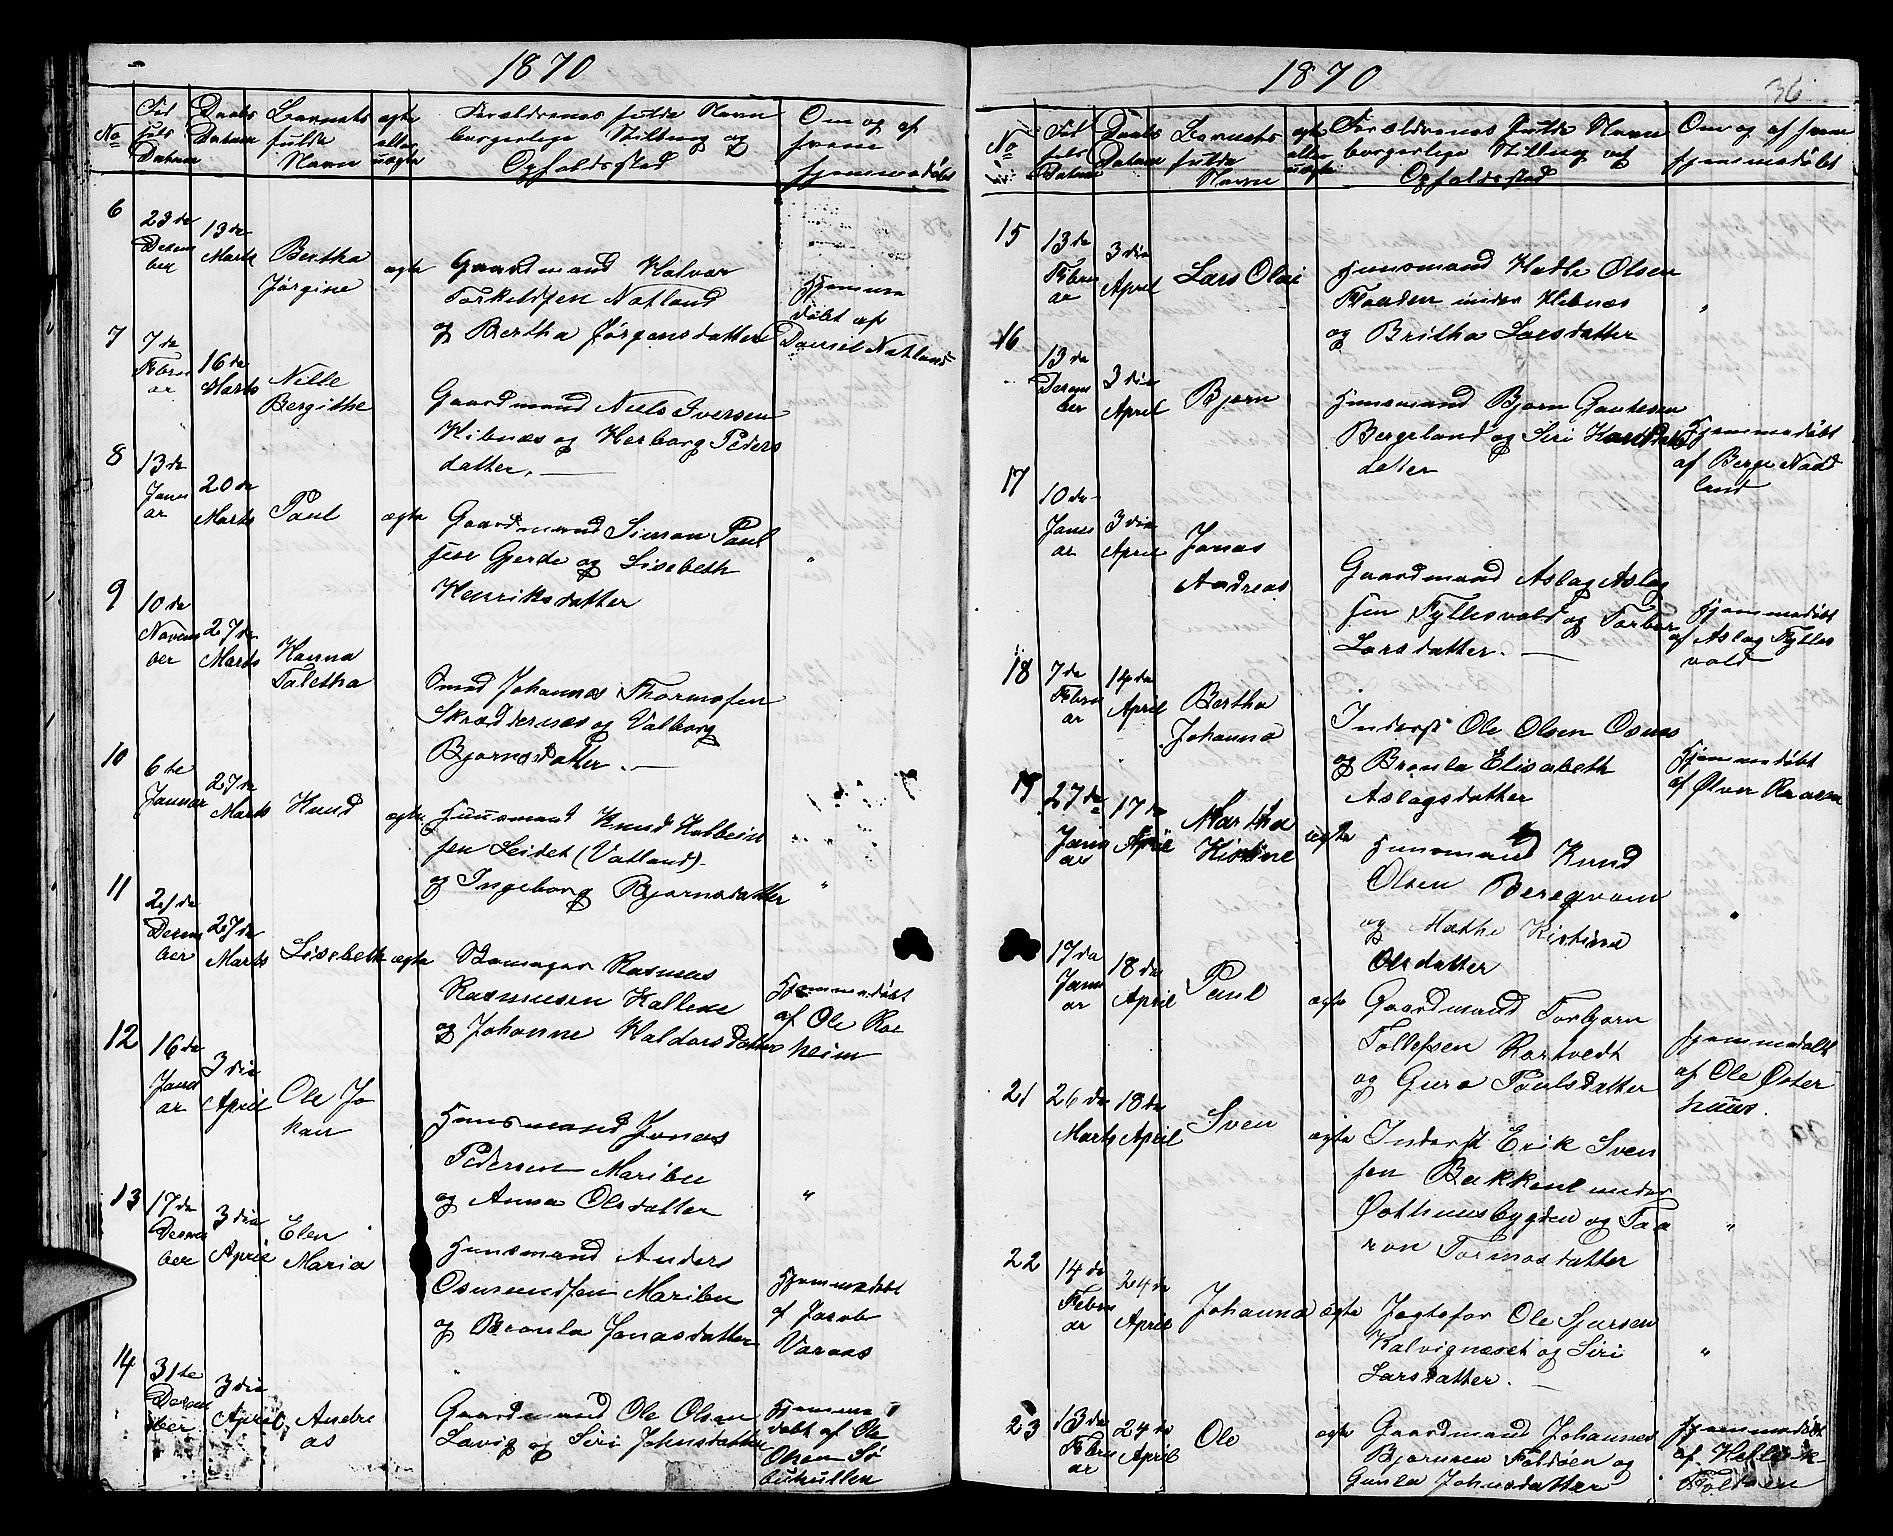 1870
No
Fød
sels
Datum
Daabs
Datum
Barnets
fulde
Navn
ægte
eller
uægte
Forældrenes fulde Navn
borgerlige Stilling og
Opholdssted
Om og af
hvem
hjemmedøbt
6
23de
Decem
ber
13de
Marts
Bertha
Jørgine
ægte
Gaardmand Halvar
Torkildsen Natland
og Bertha Jørgensdatter
Hjemme
døbt af
Daniel Natland
7
7de
Febru
ar
16de
Marts
Nille
Bergithe
Gaardmand Niels Iversen
Hibnæs og Herborg Peders
datter. —
8
13de
Janu
ar
20de
Marts
Paul
ægte
Gaardmand Simon Paul
sen Gjerde og Lisebeth
Henriksdatter
"
9
10de
Novem
ber
27de
Marts
Hanna
Taletha
Smed Johannes Thormosen
Skreddernæs og Valborg
Bjørnsdatter. —
10
6te
Januar
27de
Marts
Knud
ægte
Huusmand Knud Kolbein
sen Leitet (Vatland)
og Ingeborg Bjørnsdatter
"
11
21de
Decem
ber
27de
Marts
Lisebeth
ægte
Rasmus
Rasmusen Kallene
og Johanne Haldorsdatter
Hjemmedøbt
af Ole Roe
heim
12
16de
Janu
ar
3die
April
Ole Jo
han
Huusmand Jonas
Pedersen Maribu
og Anna Olsdatter
"
13
17de
Decem
ber
3die
April
Elen
Maria
Huusmand Anders
Osmundsen Maribu
og Bronla Jonasdatter
Hjemmedøbt
af Jacob
Varaas
14
31te
Decem
ber
3die
April
Andre
as
Gaardmand Ole Olsen
Lavig og Siri Johnsdatter
Hjemme
døbt af Ole
Olsen Sø
buhullen
1870
36
No
Fød
sels
Datum
Daabs
Datum
Barnets
fulde
Navn
ægte
eller
uægte
Forældrenes fulde Navn
borgerlige Stilling og
Opholdssted
Om og af hvem
hjemmedøbt
15
13de
Febru
ar
3die
April
Lars Olai
Huusmand Hadle Olsen
Floaden under Hibnæs
og Britha Larsdatter
"
16
13de
Decem
ber
3die
April
Bjørn
Huusmand Bjørn Gautesen
Bergeland og Siri
datter
Hjemmedøbt
af Berge Nad
land
17
10de
Janu
ar
3die
April
Jonas
Andreas
Gaardmand Aslag Aslag
sen Fyllesvold og Torbor
Larsdatter. —
Hjemmedøbt
af Aslag Fylles
vold
18
7de
Febru
ar
14de
April
Bertha
Johanna
Inderst Ole Olsen Osnes
og Bronla Elisabeth
Aslagsdatter
Hjemmedøbt
af Ølver
19
27de
Janu
ar
17de
April
Martha
Kistine
ægte
Huusmand Knud
Olsen Bergqvam
og Marthe Kistine
Olsdatter
"
17de
Janu
ar
18de
April
Paul
ægte
Gaardmand Torbjørn
Tollefsen Rartvedt
og Guro Poulsdatter
Hjemmedøbt
af Ole Øster
huus.
21
26de
Marts
18de
April
Sven
ægte
Inderst Erik Sven
sen Bakkene under
Østhuusbygden og Taa
ron Tormosdatter
"
22
14de
Febru
ar
24de
April
Johanna
ægte
Jagtefør Ole Sjursen
Kalvignæset og Siri
Larsdatter. —
"
23
13de
Febru
ar
24de
April
Ole
ægte
Gaardmand Johannes
Bjørnsen Foldøen og
Gunla Johnsdatter
Hjemmedøbt
af Hellik
Foldøen